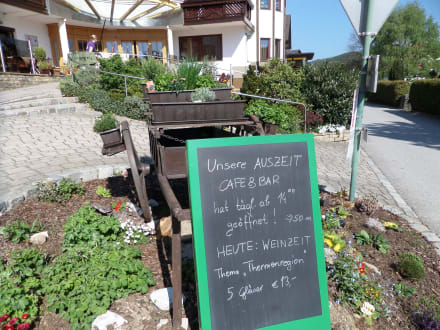 Unsere AUSZEIT
CAFE & BAR
hat tägl. ab 14⁰⁰
geöffnet! →50m
HEUTE: WEINZEIT
Thema „Thermenregion"
5 Gläser € 13,-